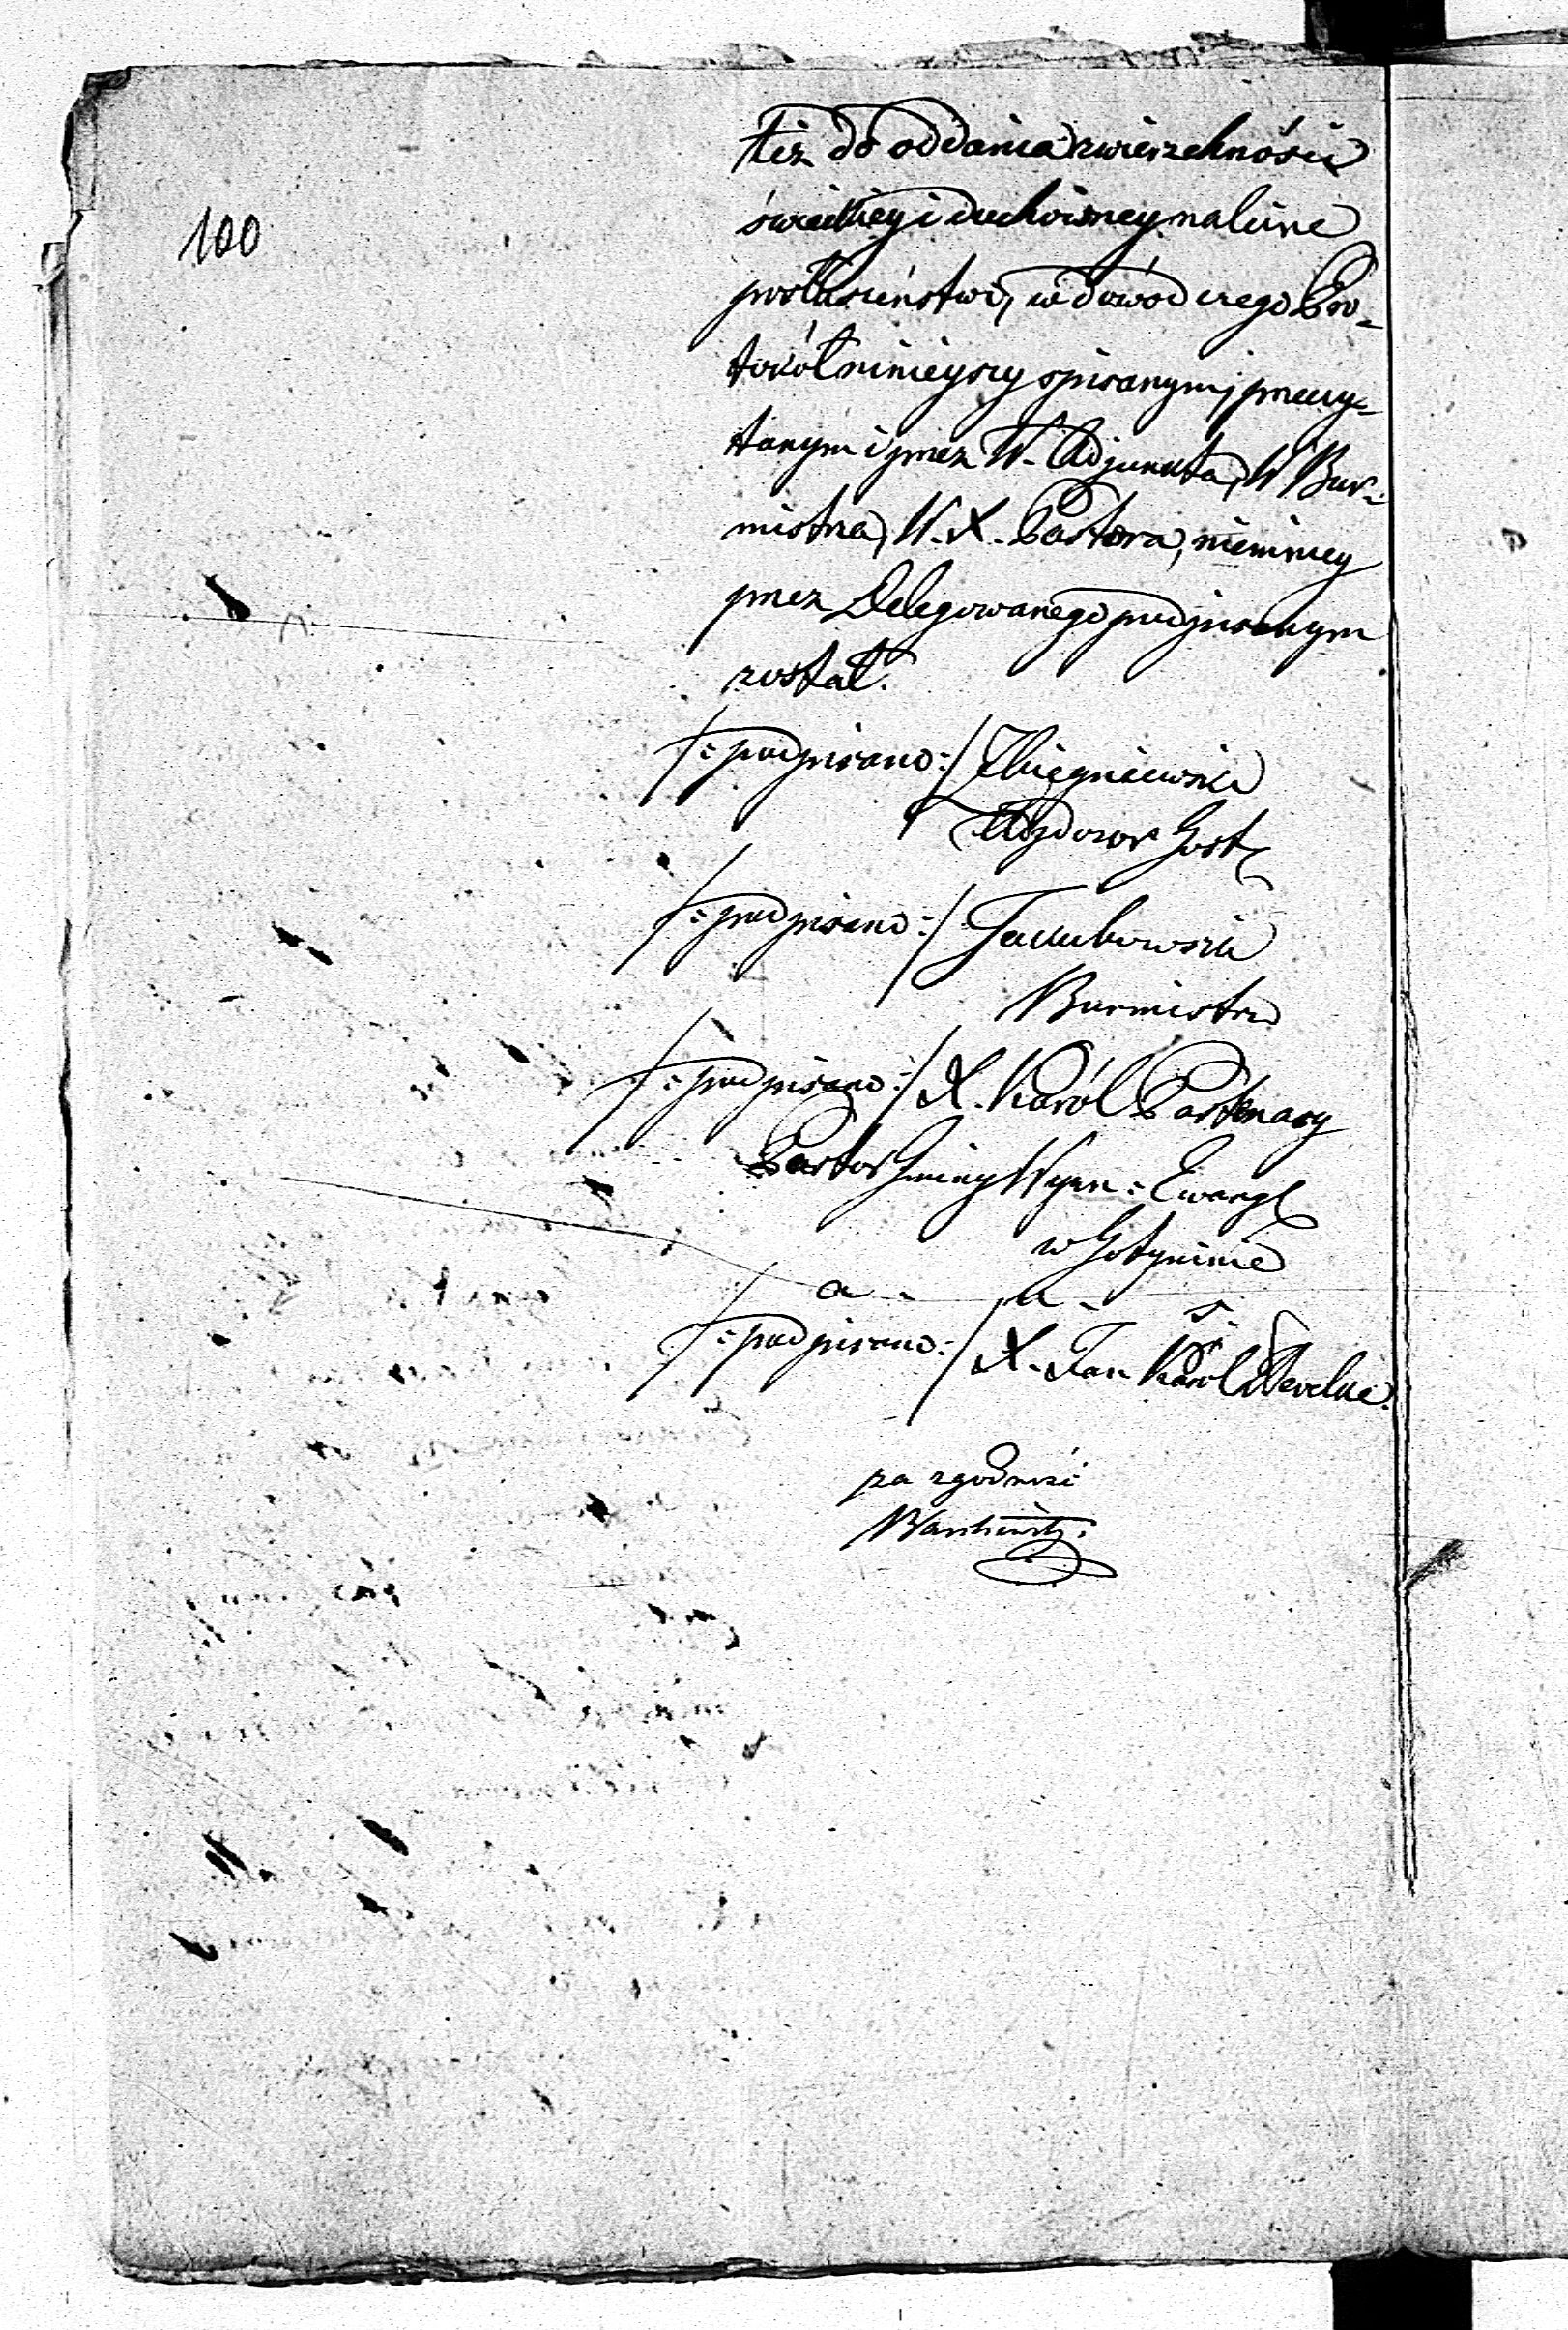 100
też do oddania zwierzchności
świeckiey i duchowney należne
posłuszeństwo, w dowód czego Pro-
tokół ninieyszy spisanym, przeczy-
tanym i przez W. Adjunkta, W Bur-
mistrza, W. X. Pastora, niemniey
przez Delegowanego podpisanym
został.
/:podpisano:/ Zbiegniewski
Adj dozor Gost
/:podpisano:/ Jakubowski
Burmistrz
/:podpisano:/ X. Karól
Pastor Gminy Wyzn: Ewang
w Gostyninie
/:podpisano:/ X. Jan Karol
za zgodność